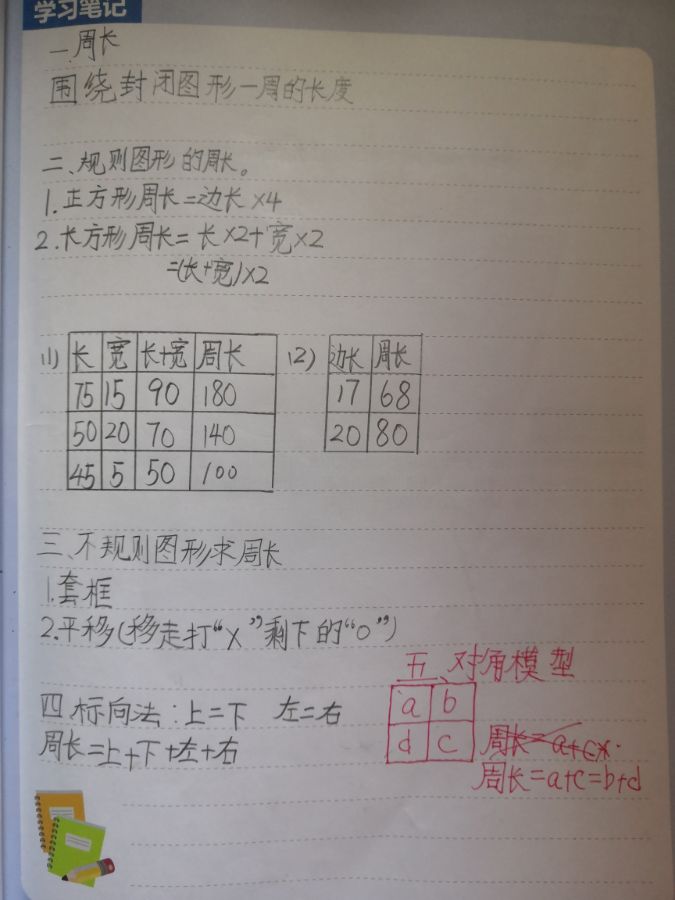 学习笔记
一周长
围绕封闭图形一周的长度
二、规则图形的周长。
1.正方形周长=边长×4
2.长方形周长=长×2+宽×2
=(长+宽)×2
(1) 长 宽 长+宽 周长
75 15 90 180
50 20 70 140
45 5 50 100
(2) 边长 周长
17 68
20 80
三、不规则图形求周长
1.套框
2.平移(移走打“×”剩下的“0”)
四 标向法:上=下 左=右
周长=上+下+左+右
五、对角模型
a b
d c
周长=a+c×.
周长=a+c=b+d